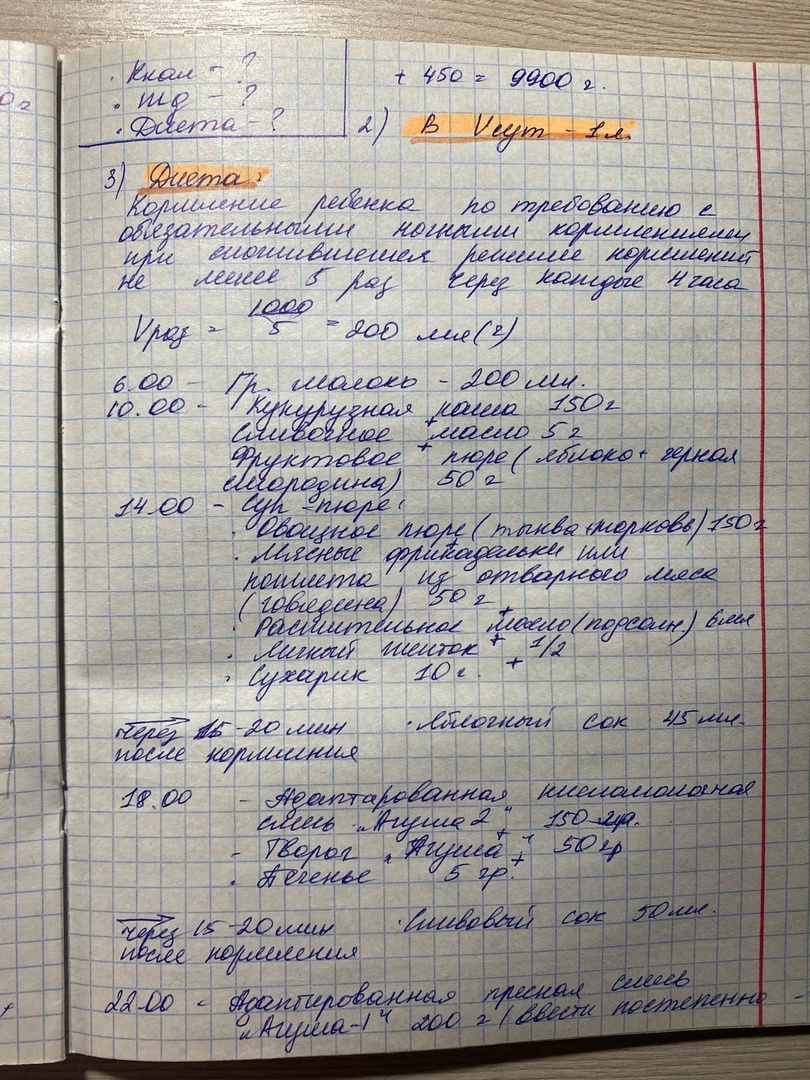 · Ккал - ?
· mд - ?
· Диета - ?
+ 450 = 9900 г.
2) В Vсут - 1 л.
3) Диета:
Кормление ребенка по требованию с
обязательными ночными кормлениями
при сложившемся режиме кормлений
не менее 5 раз через каждые 4 часа
Vраз = 1000/5 = 200 мл (г)
6.00 - Гр. молоко - 200 мл.
10.00 - Кукурузная каша 150 г +
Сливочное масло 5 г +
Фруктовое пюре ( яблоко + черная
смородина) 50 г
14.00 - Суп-пюре:
· Овощное пюре ( тыква + морковь) 150 г +
· Мясные фрикадельки или
котлета из отварного мяса
(говядина) 50 г +
· Растительное масло (подсолн.) 6 мл +
· Яичный желток 1/2 +
· Сухарик 10 г.
через 15-20 мин · Яблочный сок 45 мл.
после кормления
18.00 - Адаптированная кисломолочная
смесь „Агуша 2" 150 гр. +
- Творог „Агуша" 50 гр +
· Печенье 5 гр.
через 15-20 мин · Сливовый сок 50 мл.
после кормления
22.00 - Адаптированная пресная смесь
„Агуша-1" 200 г ( Ввести постепенно -